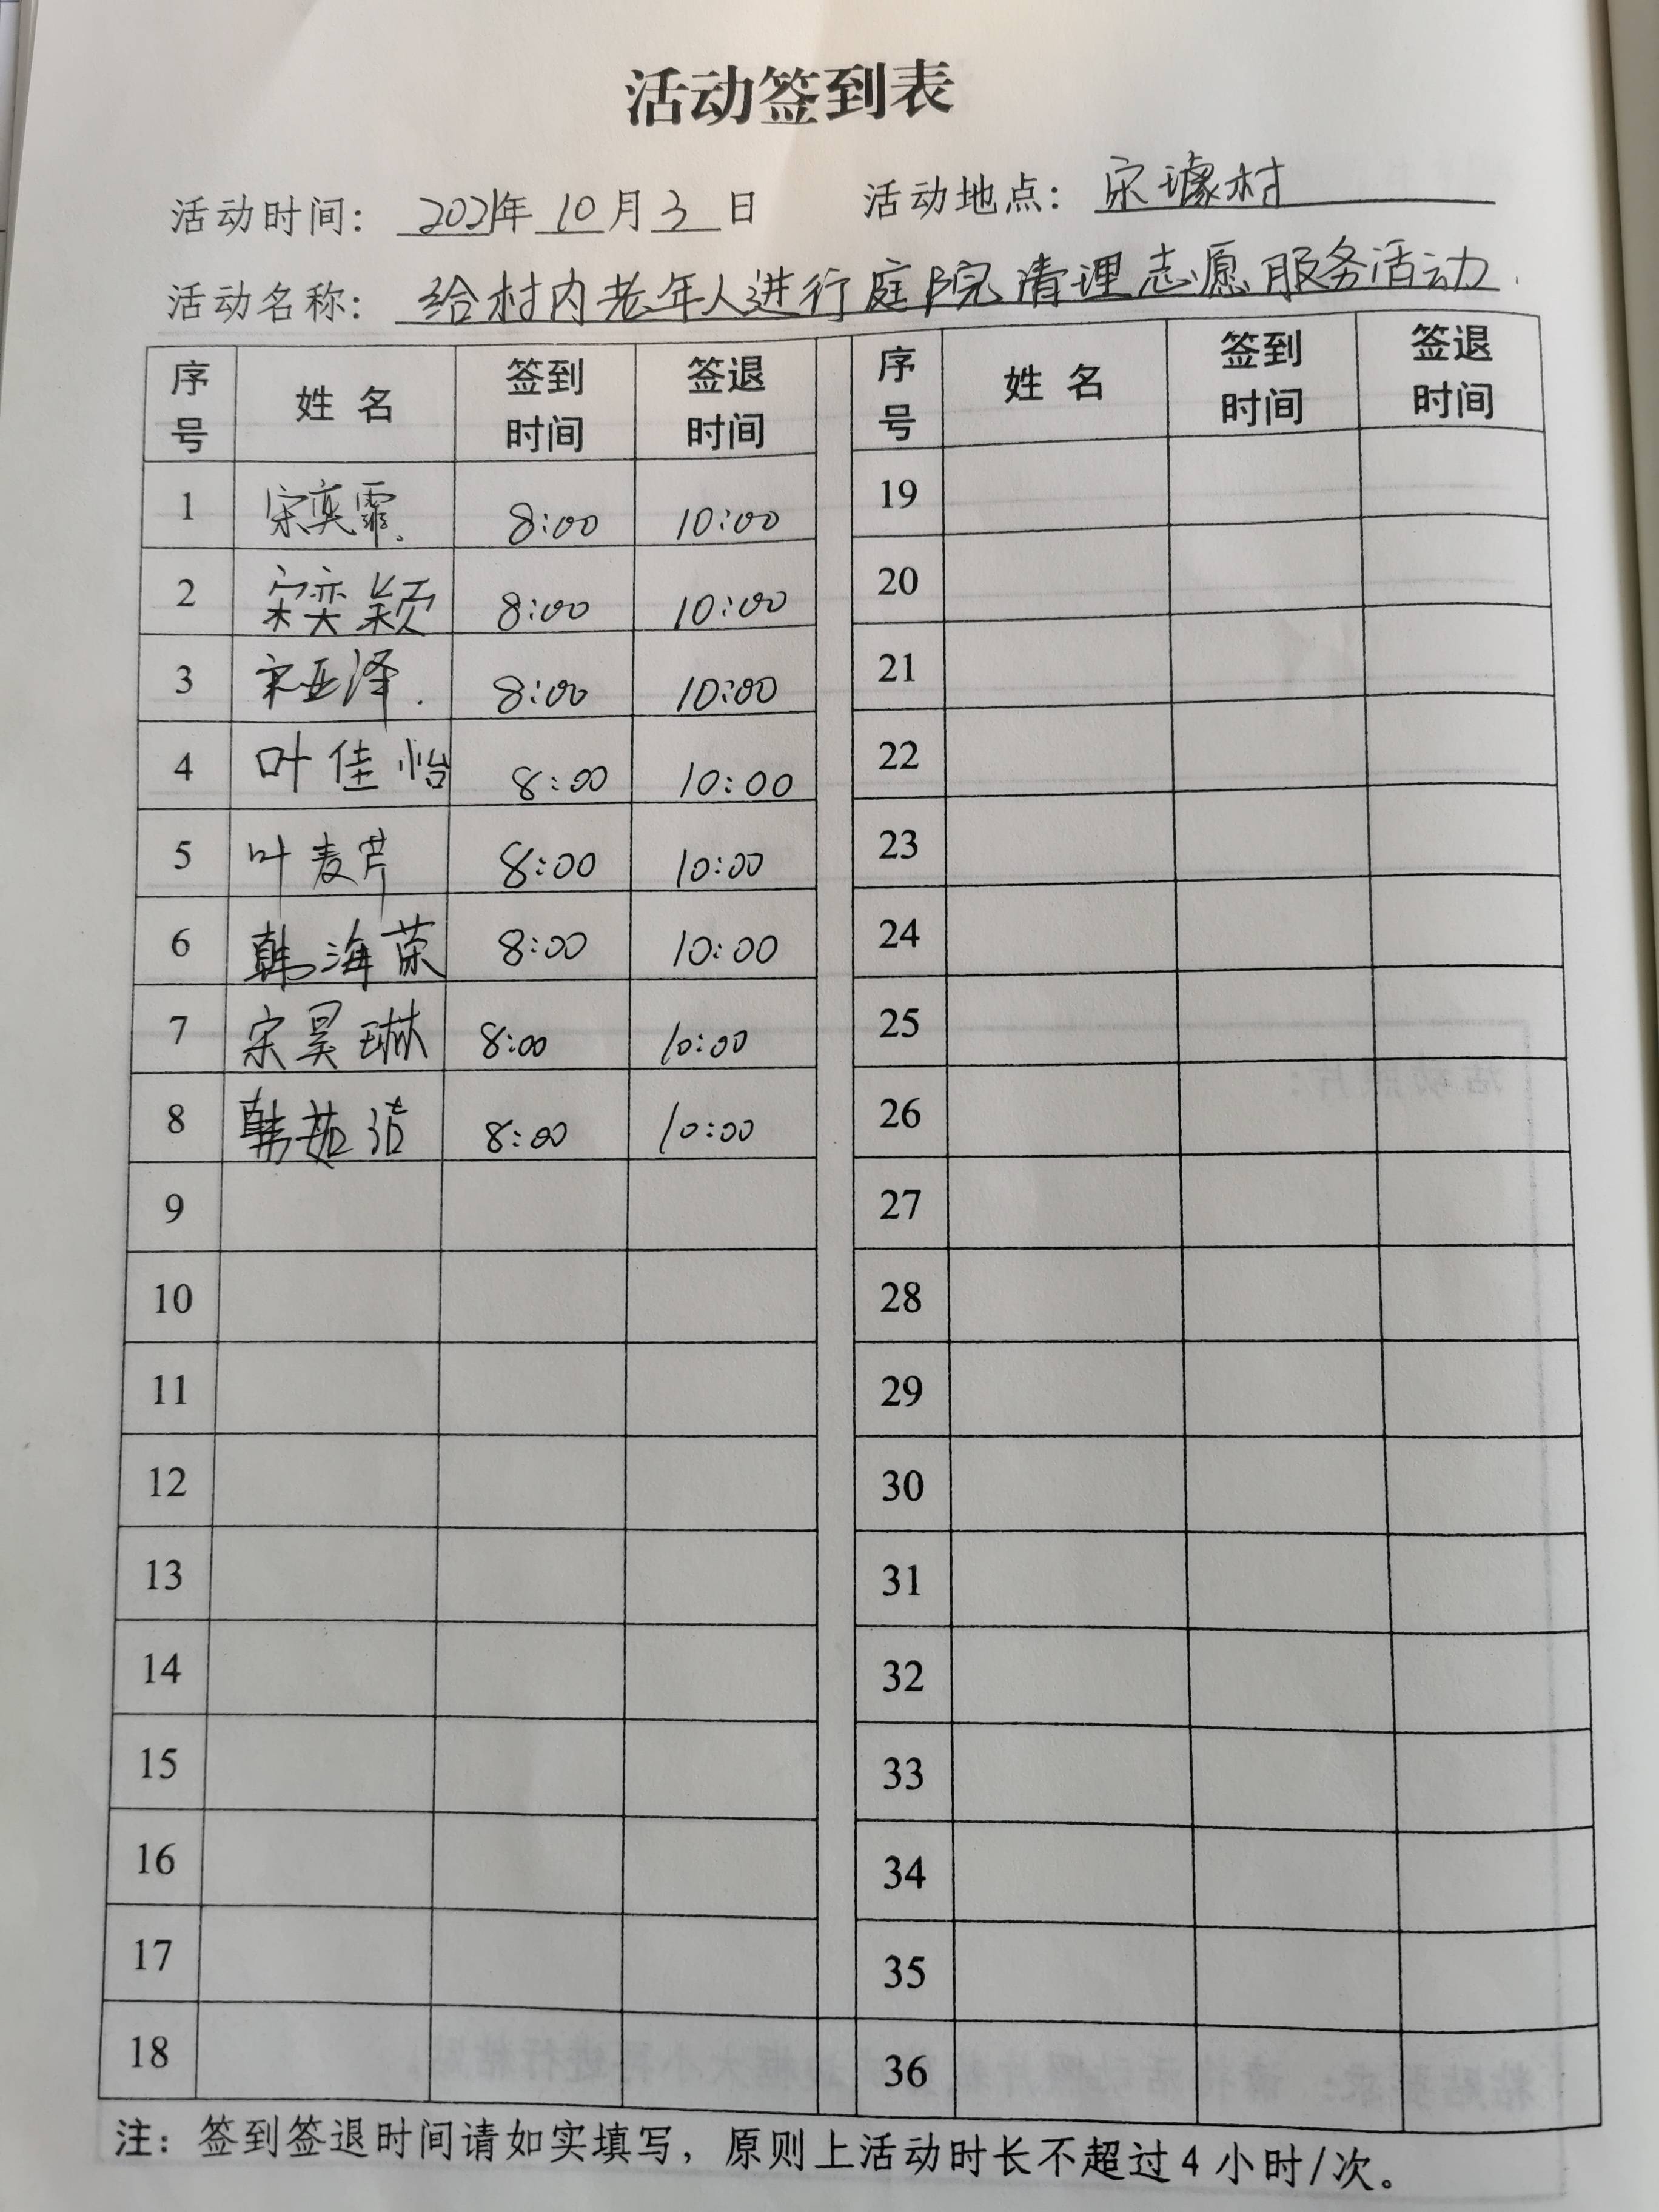 活动签到表
活动时间：2021年10月3日 活动地点：宋壕村
活动名称：给村内老年人进行庭院清理志愿服务活动.
序号 姓名 签到时间 签退时间 序号 姓名 签到时间 签退时间
1 宋奕霏. 8:00 10:00 19
2 宋奕颖 8:00 10:00 20
3 宋亚泽. 8:00 10:00 21
4 叶佳怡 8:00 10:00 22
5 叶麦芹 8:00 10:00 23
6 韩海荣 8:00 10:00 24
7 宋昊琳 8:00 10:00 25
8 韩茹洁 8:00 10:00 26
9 27
10 28
11 29
12 30
13 31
14 32
15 33
16 34
17 35
18 36
注：签到签退时间请如实填写，原则上活动时长不超过4小时/次。